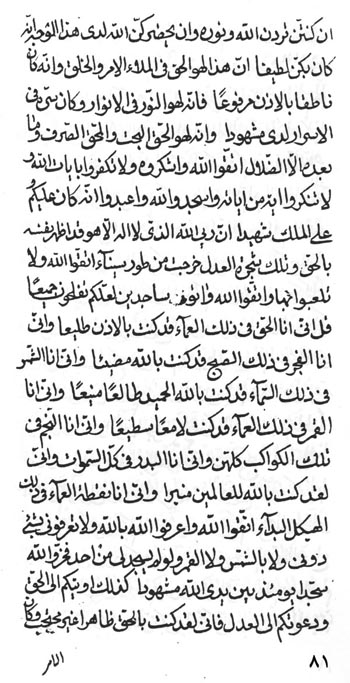 ان كنتن تردن الله ونوره وان يحضركن الله لدى هذا اللوح انه
كان بكن لطيفا انه هذا لهو الحق فى الملاء الامر والخلق وانه كان
ناطقا بالاذن مرفوعا فانه لهو النور فى الانوار وكان سرى فى
الاسرار لدى مشهودا وانه لهو الحق البحت والحق الصرف وما
بعده الا الضلال اتقوا الله واشكروه ولا تكفروا بايات الله و
لا تنكروا اية من اياته واسجدو الله واعبدوا انه كان عليكم
على الملك شهيدا ان ربى الله الذى لا اله الا هو قد اظهر نفسه
بالحق وتلك شجرة العدل خرجت من طور سيناء اتقوا الله ولا
تلعبوا بها واتقوا الله ساجدين لعلكم تفلحون جميعا
قل انى انا الحق فى ذلك العماء قد كنت بالاذن طليعا وانى
انا الفجر فى ذلك الصبح قد كنت بالله مضيئا وانى انا الشمس
فى ذلك السماء قد كنت بالله المجيد طالعا منيعا وانى انا
القمر فى ذلك العماء قد كنت لامعا سطيعا وانى انا النجم فى
تلك الكواكب كلهن وانى انا البدر فى كل السموات وانى
لقد كنت بالله للعالمين منيرا وانى انا نقطة العماء وذلك
الهيكل البداء اتقوا الله واعرفوا الله بالله ولا تعرفونى بشئ
دونى ولا بالشمس ولا القمر ولو له يسجد لى من احد فخروا لله
سجدا يومئذ بين يدى الله مشهودا كذلك اوتيكم الى الحق
ودعوتكم الى العدل فانى لقد كنت بالحق ظاهرا غير محتجب وكان
الامر
٨١